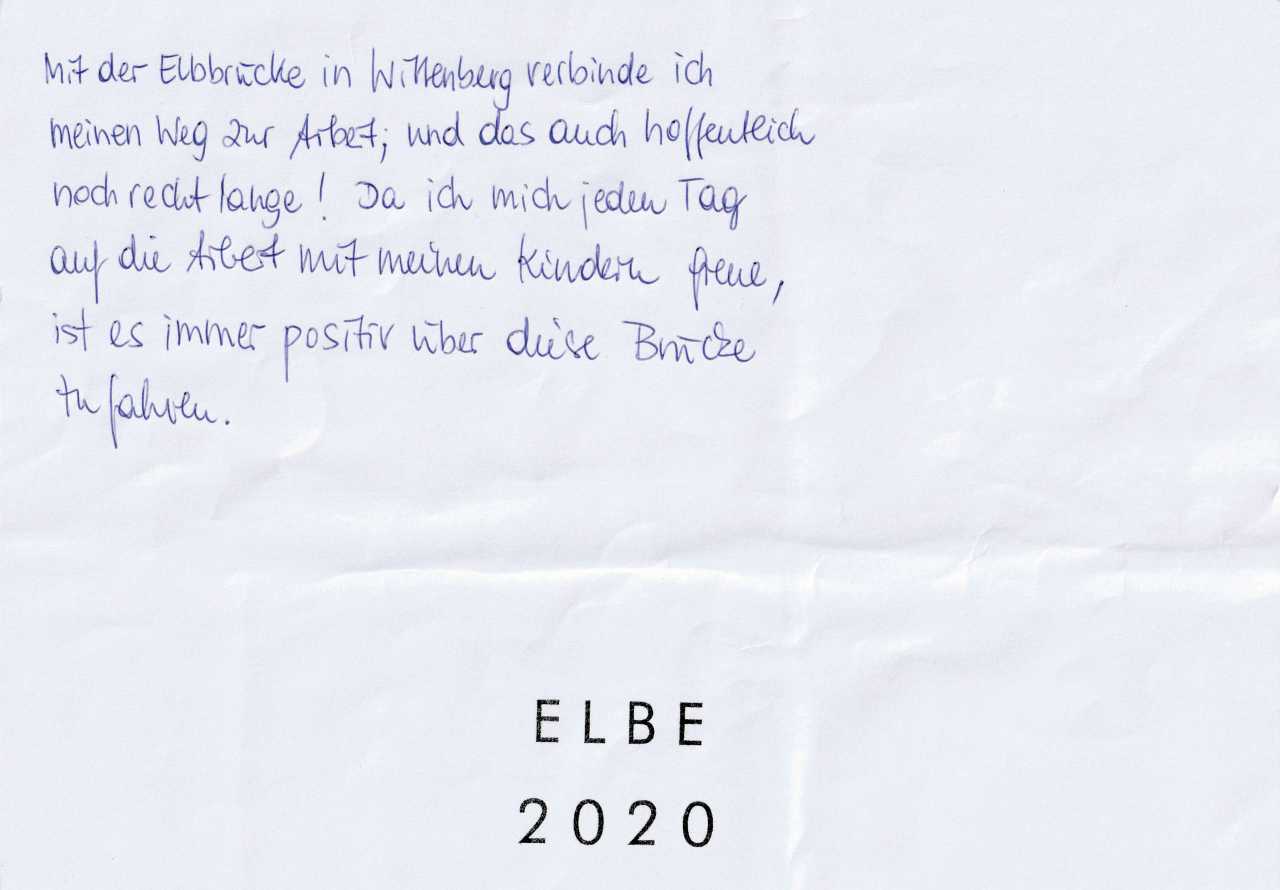 Mit der Elbbrücke in Wittenberg verbinde ich
meinen Weg zur Arbeit; und das auch hoffentlich
noch recht lange! Da ich mich jeden Tag
auf die Arbeit mit meinen Kindern freue,
ist es immer positiv über diese Brücke
zu fahren.
ELBE
2020